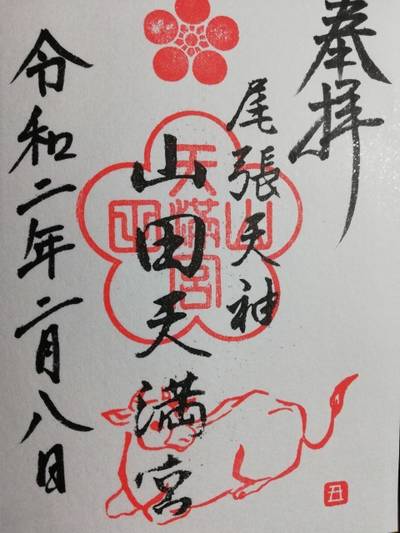 奉拝
尾張天神
山田天満宮
山田天満宮
令和二年二月八日
丑